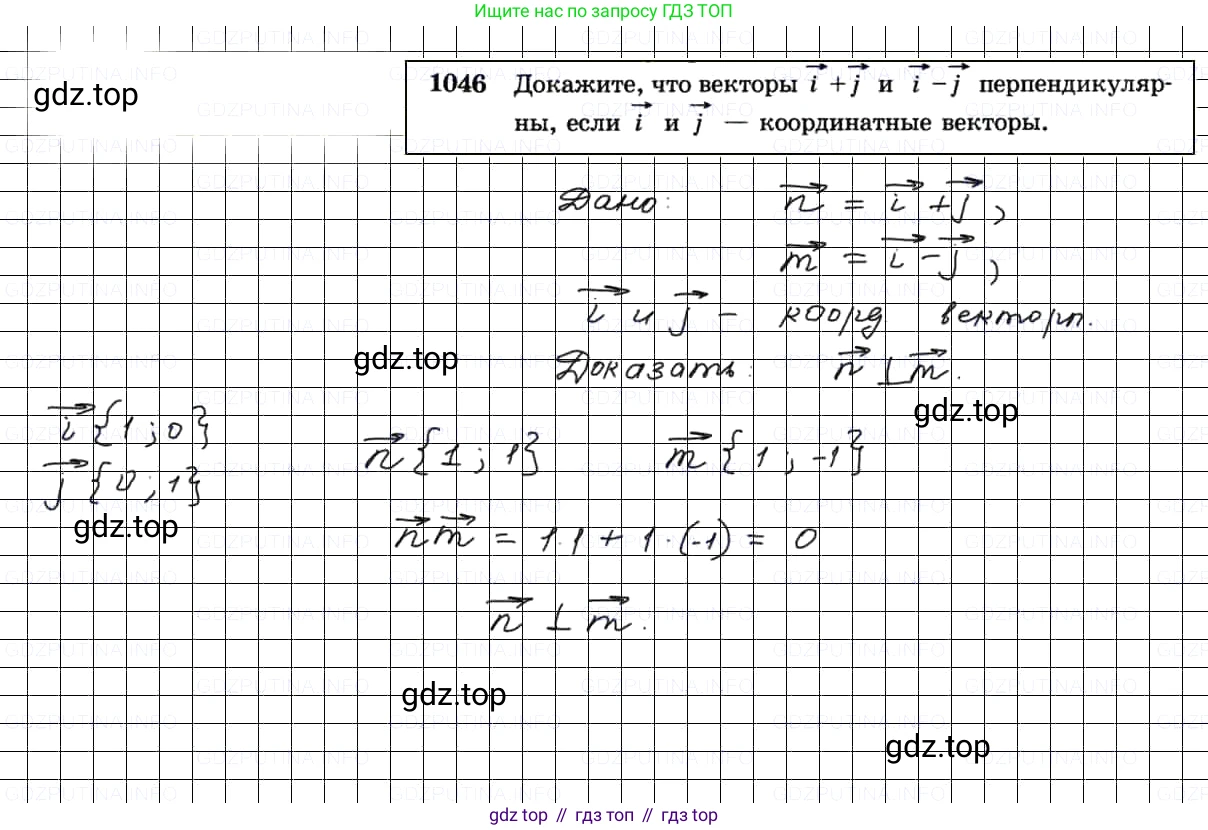 Ищите нас по запросу ГДЗ ТОП
1046 Докажите, что векторы i + j и i − j перпендикуляр-
ны, если i и j — координатные векторы.
gdz.top
Дано: n = i + j,
m = i − j,
i и j − коорд векторы.
gdz.top
Доказать: n ⊥ m.
gdz.top
i {1 ; 0}
j {0 ; 1}
n {1 ; 1} m {1 ; -1}
gdz.top
n m = 1·1 + 1·(-1) = 0
n ⊥ m.
gdz.top
gdz.top
gdz top // гдз топ // gdz top